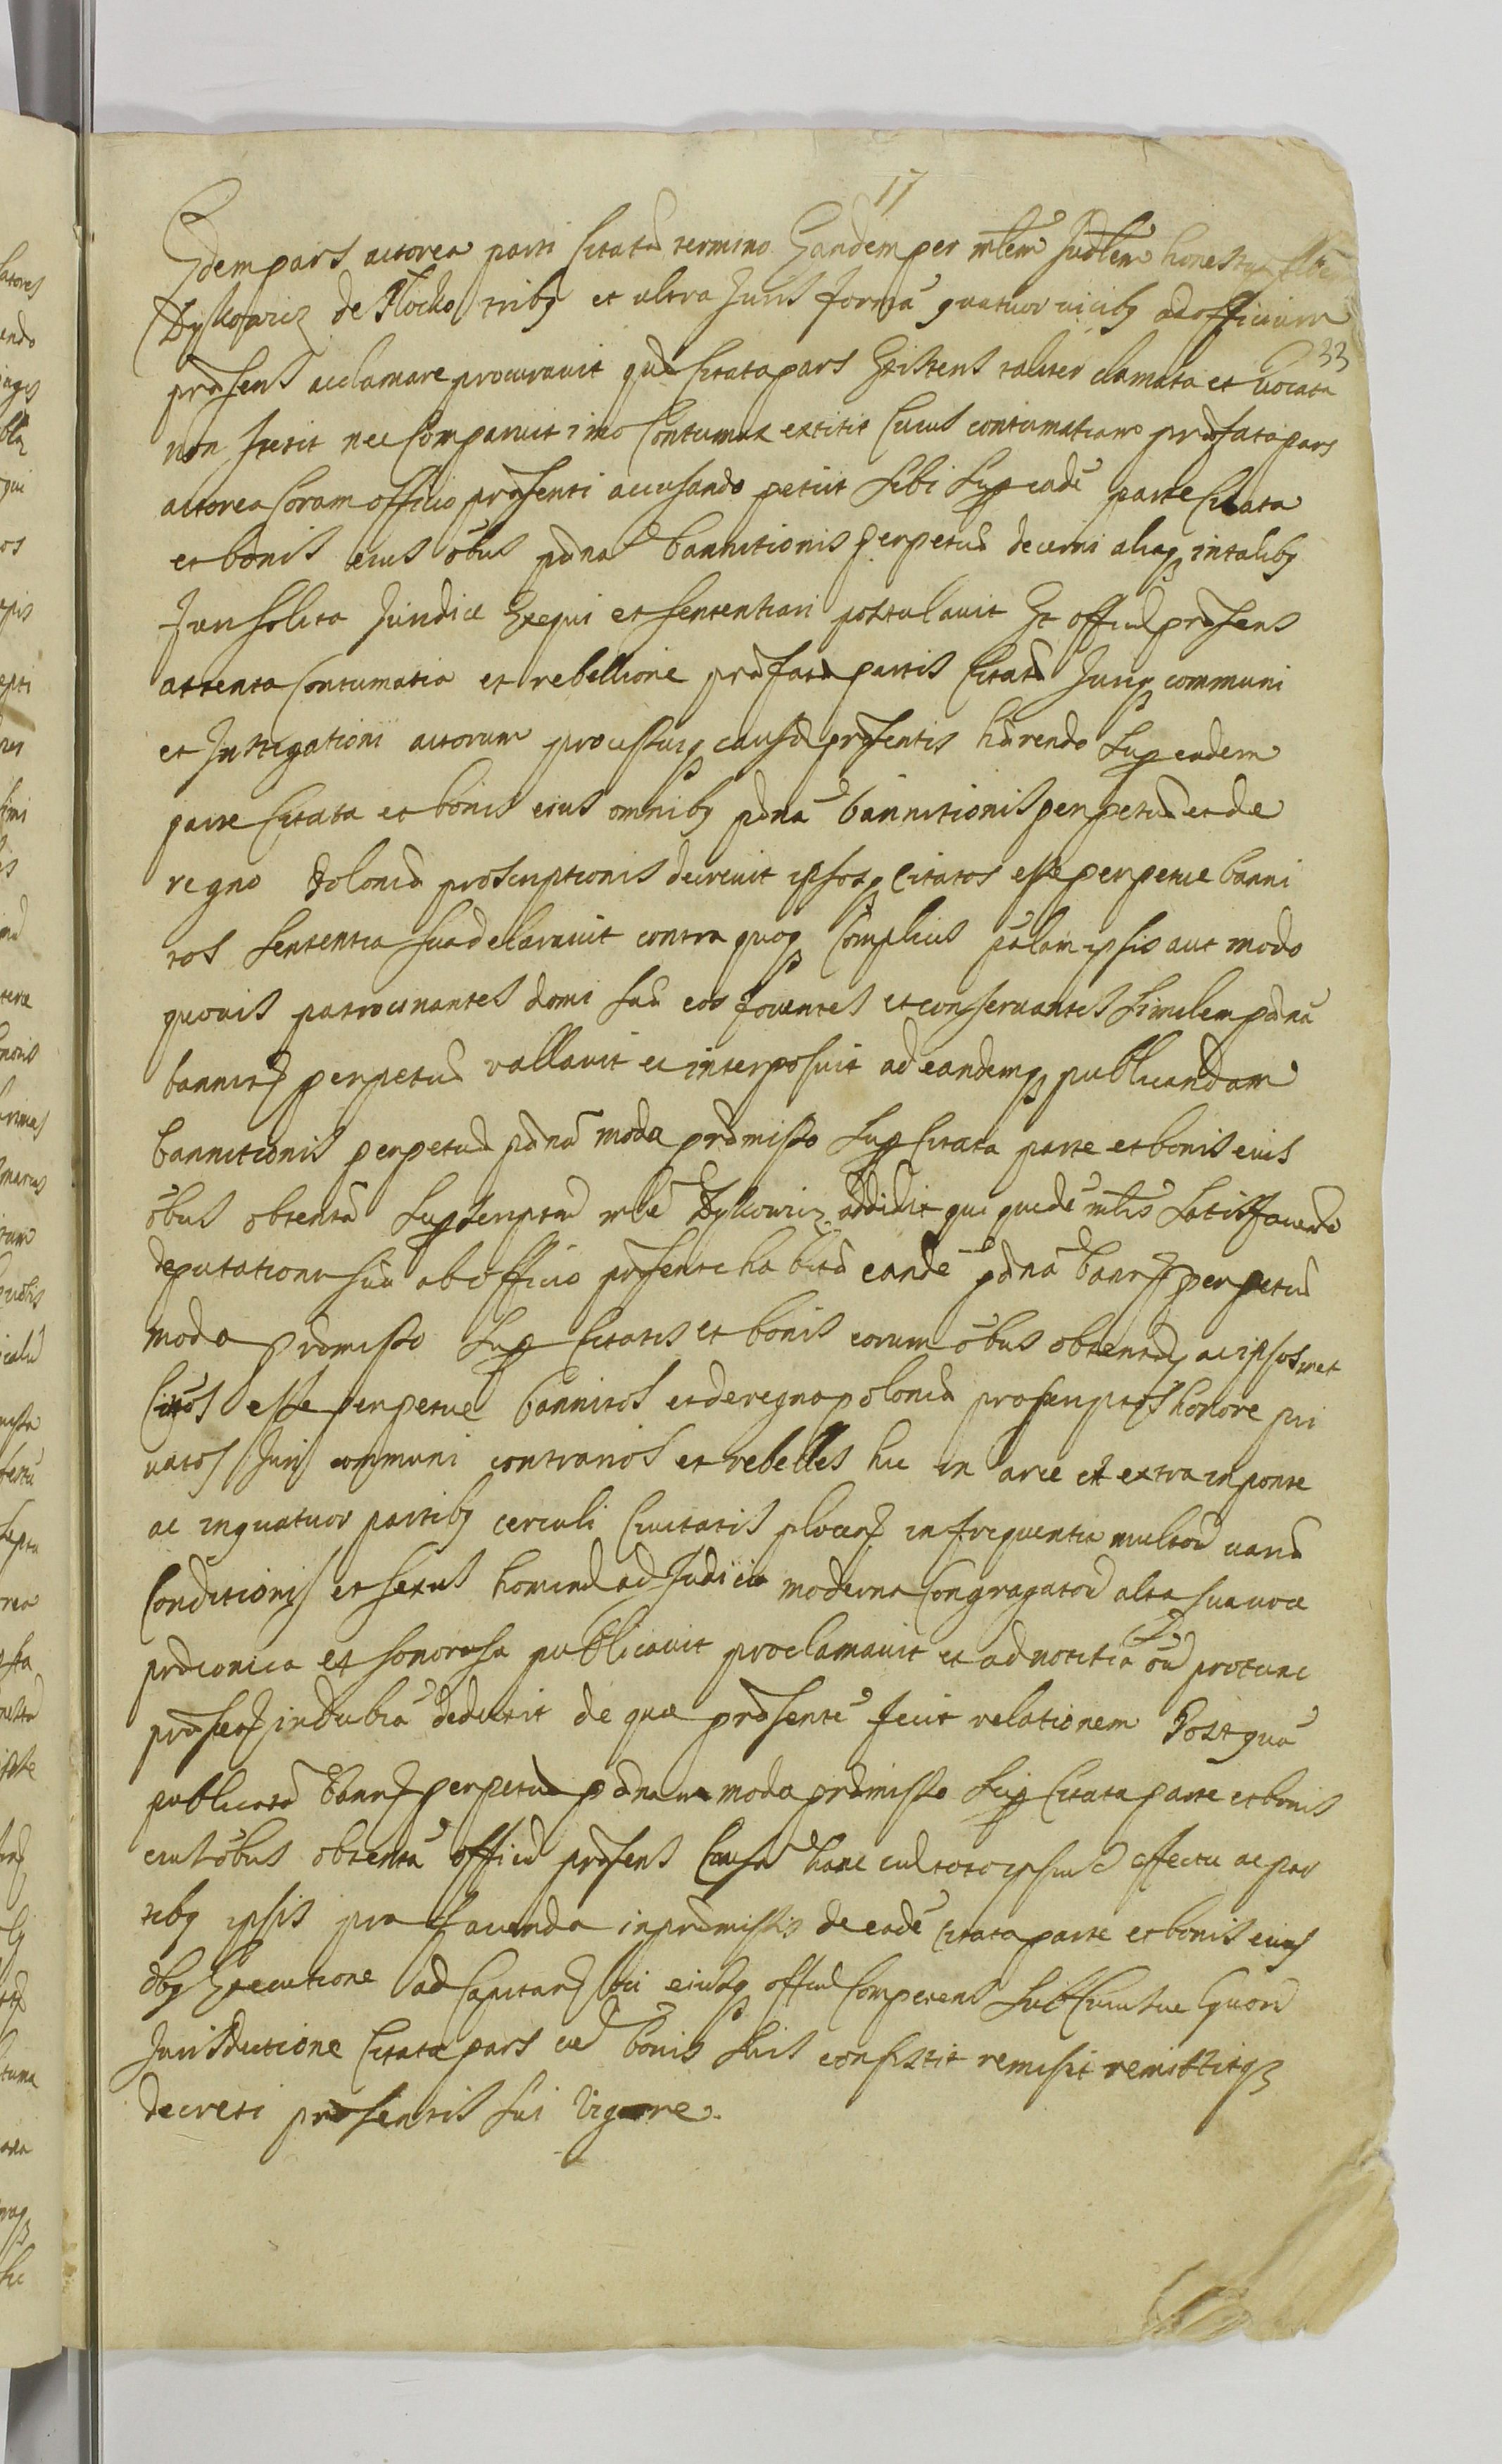 17
Edem pars actorea parti Citatæ termino Eandem per mlem Judlem honestum
Dyskowicz de Plocko tribq et ultra Juris formã quatuor vicibq ad officium
33
præsens acclamare procuravit quæ Citata pars Existens taliter clamata et vocata
non stetit nec Comparuit imo Contumax extitit Cuius contumatiam præfata pars
actorea Coram officio præsenti accusando petiit sibi sup eadẽ parte Citata
et bonis eius õbus pænã bannitionis perpetuæ decerni aliaq in talibq
Juri solita Juridice Exequi et sententiari postulavit Et offium præsens
attenta Contumatia et rebellione præfatæ partis Citatæ Juriq communi
et Instigationi actorum processuiq causæ præsentis hærendo sup eadem
parte Citata et bonis eius omnibq pænã bannitionis perpetuæ et de
regno Poloniæ proscriptionis decrevit ipsosq Citatos esse perpetue banni
tos sententia sua declaravit contra quosq Complices palam ipsis aut modo
quovis patrocinantes domi suæ eos foventes et conservantes similem pænã
bannit perpetuæ vallavit et interposuit ad eandemq publicandam
bannitionis perpetuæ pænã modo præmisso sup Citata parte et bonis eius
õbus obtentã supscriptum mlẽ Dyskowicz addidit qui quidẽ mlis satisfaciendo
deputationi suæ ab officio præsenti habitæ eandẽ pænã bann perpetuæ
modo præmisso sup Citatis et bonis eorum õbus obtentã, ac ipsosmet
Citos esse perpetue bannitos et de regno poloniæ proscriptos honore pri
vatos Juri communi contrarios et rebelles hic in arce et extra in ponte
ac in quatuor partibq circuli Civitatis plocen in frequentia multorũ variæ
Conditionis et sexus hominũ ad Judicia moderna Congragatorũ alta sua voce
præconica et sonorosa publicavit proclamavit et ad notitiã oiũ protunc
præsen indubiã deduxit de quo præsentẽ fecit relationem Post quã
publicatã bann perpetuæ pænam modo præmisso sup Citata parte et bonis
eius õbus obtentã officiũ præsens Causã hanc cũ toto ipsius effectu ac par
tibq ipsis pro facienda in præmissis de eadẽ citata parte et bonis eius
õbq Executione ad Capitan loci eiusq officiũ Competens sub Cuius sue Quorũ
Jurisdictione Citata pars cũ bonis suis consistit remisit remittitq
decreti præsentis sui vigore.